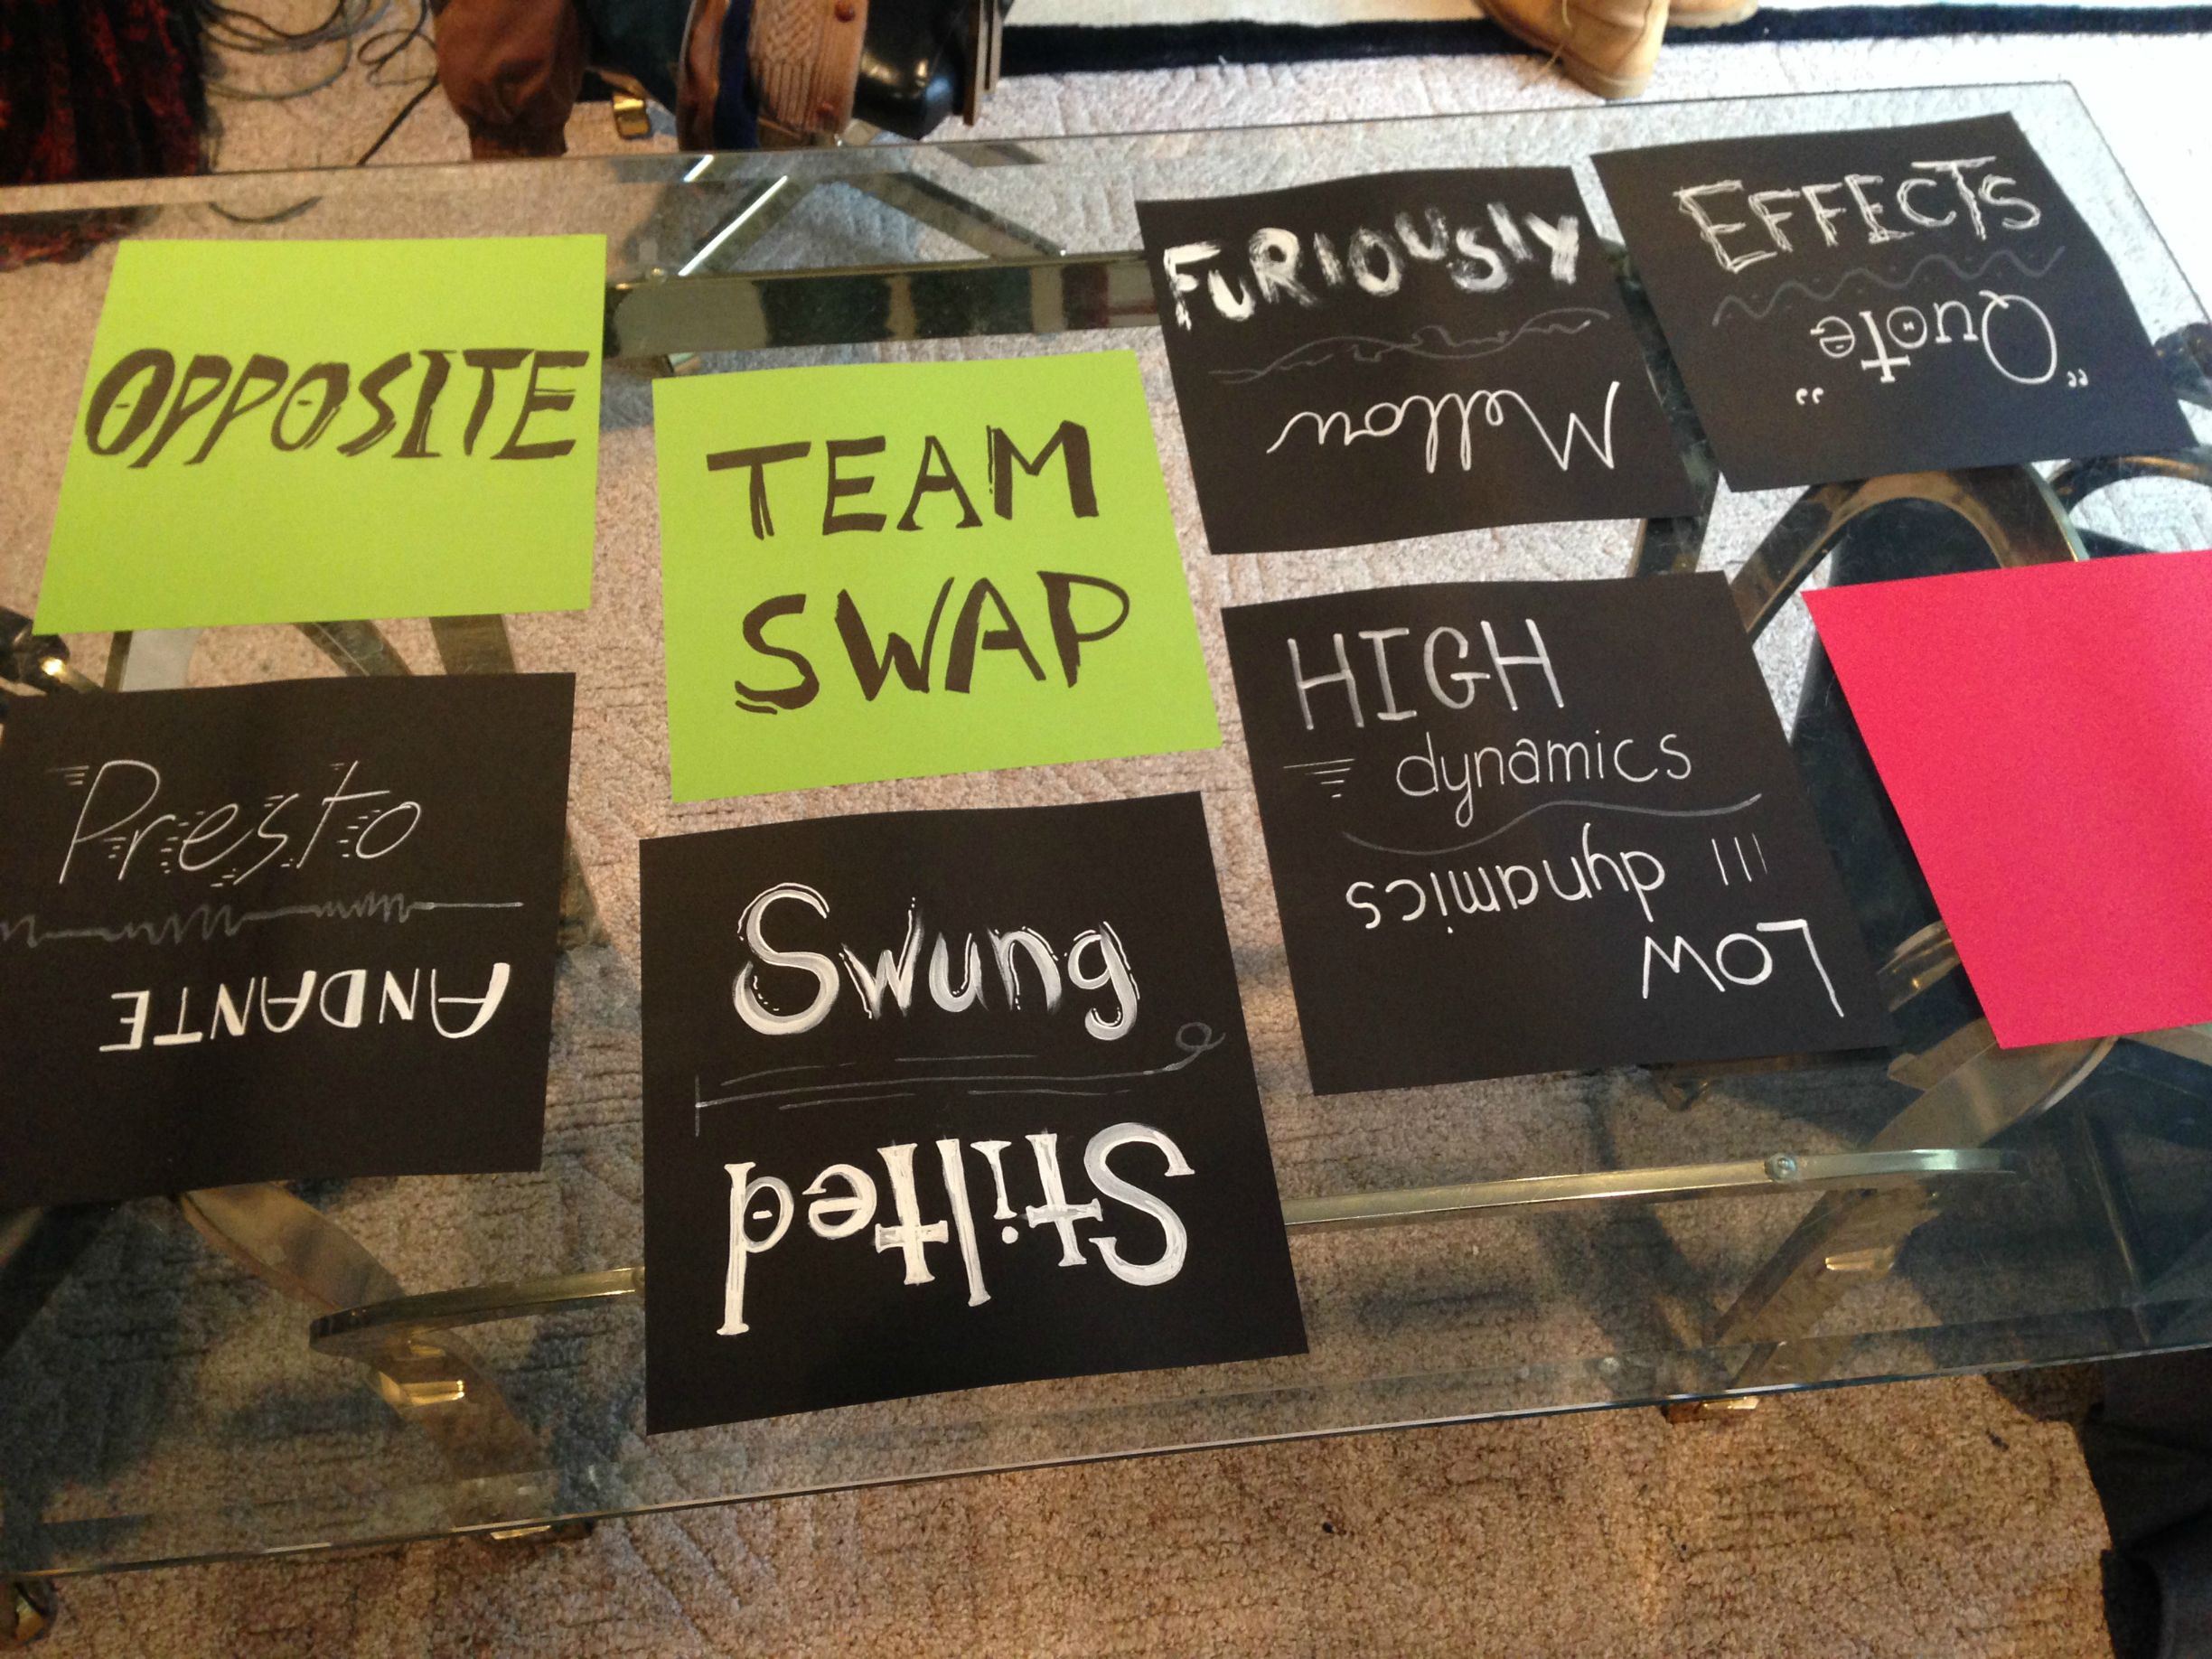 OPPOSITE
TEAM
SWAP
FURIOUSLY
Mellow
EFFECTS
"Quote"
Presto
ANDANTE
Swung
Stilted
HIGH
dynamics
Low
dynamics